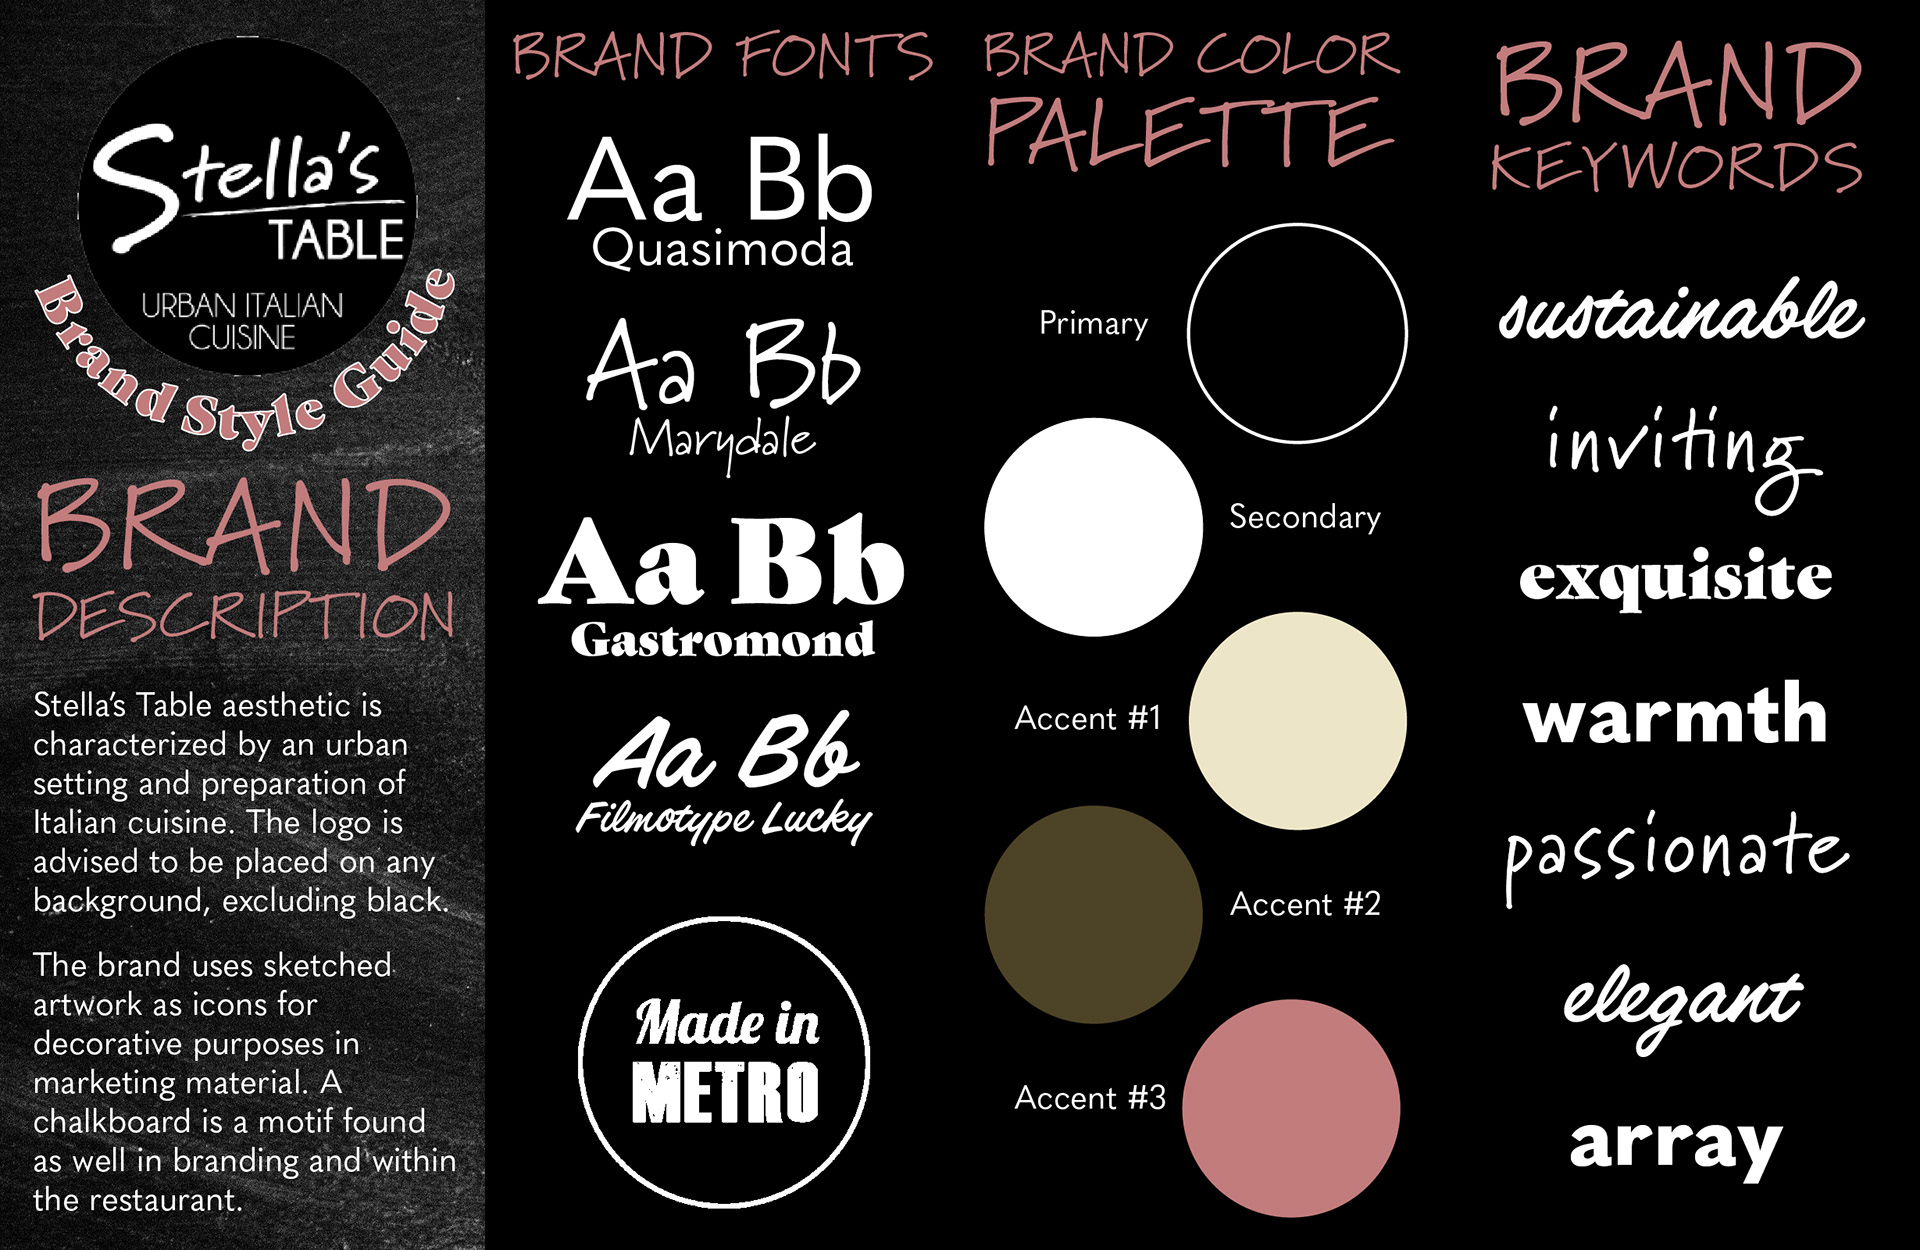 Stella's
TABLE
URBAN ITALIAN
CUISINE
Brand Style Guide
BRAND
DESCRIPTION
Stella's Table aesthetic is
characterized by an urban
setting and preparation of
Italian cuisine. The logo is
advised to be placed on any
background, excluding black.
The brand uses sketched
artwork as icons for
decorative purposes in
marketing material. A
chalkboard is a motif found
as well in branding and within
the restaurant.
BRAND FONTS
Aa Bb
Quasimoda
Aa Bb
Marydale
Aa Bb
Gastromond
Aa Bb
Filmotype Lucky
Made in
METRO
BRAND COLOR
PALETTE
Primary
Secondary
Accent #1
Accent #2
Accent #3
BRAND
KEYWORDS
sustainable
inviting
exquisite
warmth
passionate
elegant
array